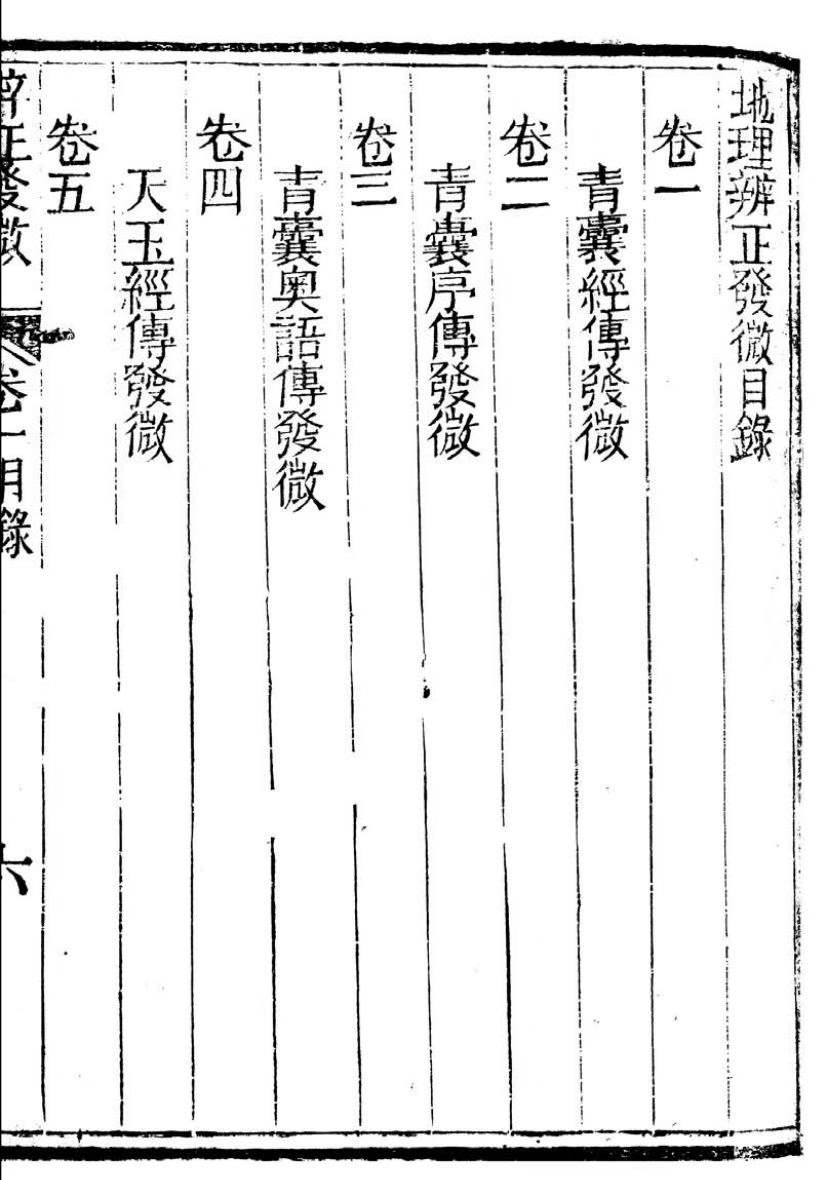 地理辨正發微目錄
卷一
青囊經傳發微
卷二
青囊序傳發微
卷三
青囊奧語傳發微
卷四
天玉經傳發微
卷五
正發微
卷一目錄
六